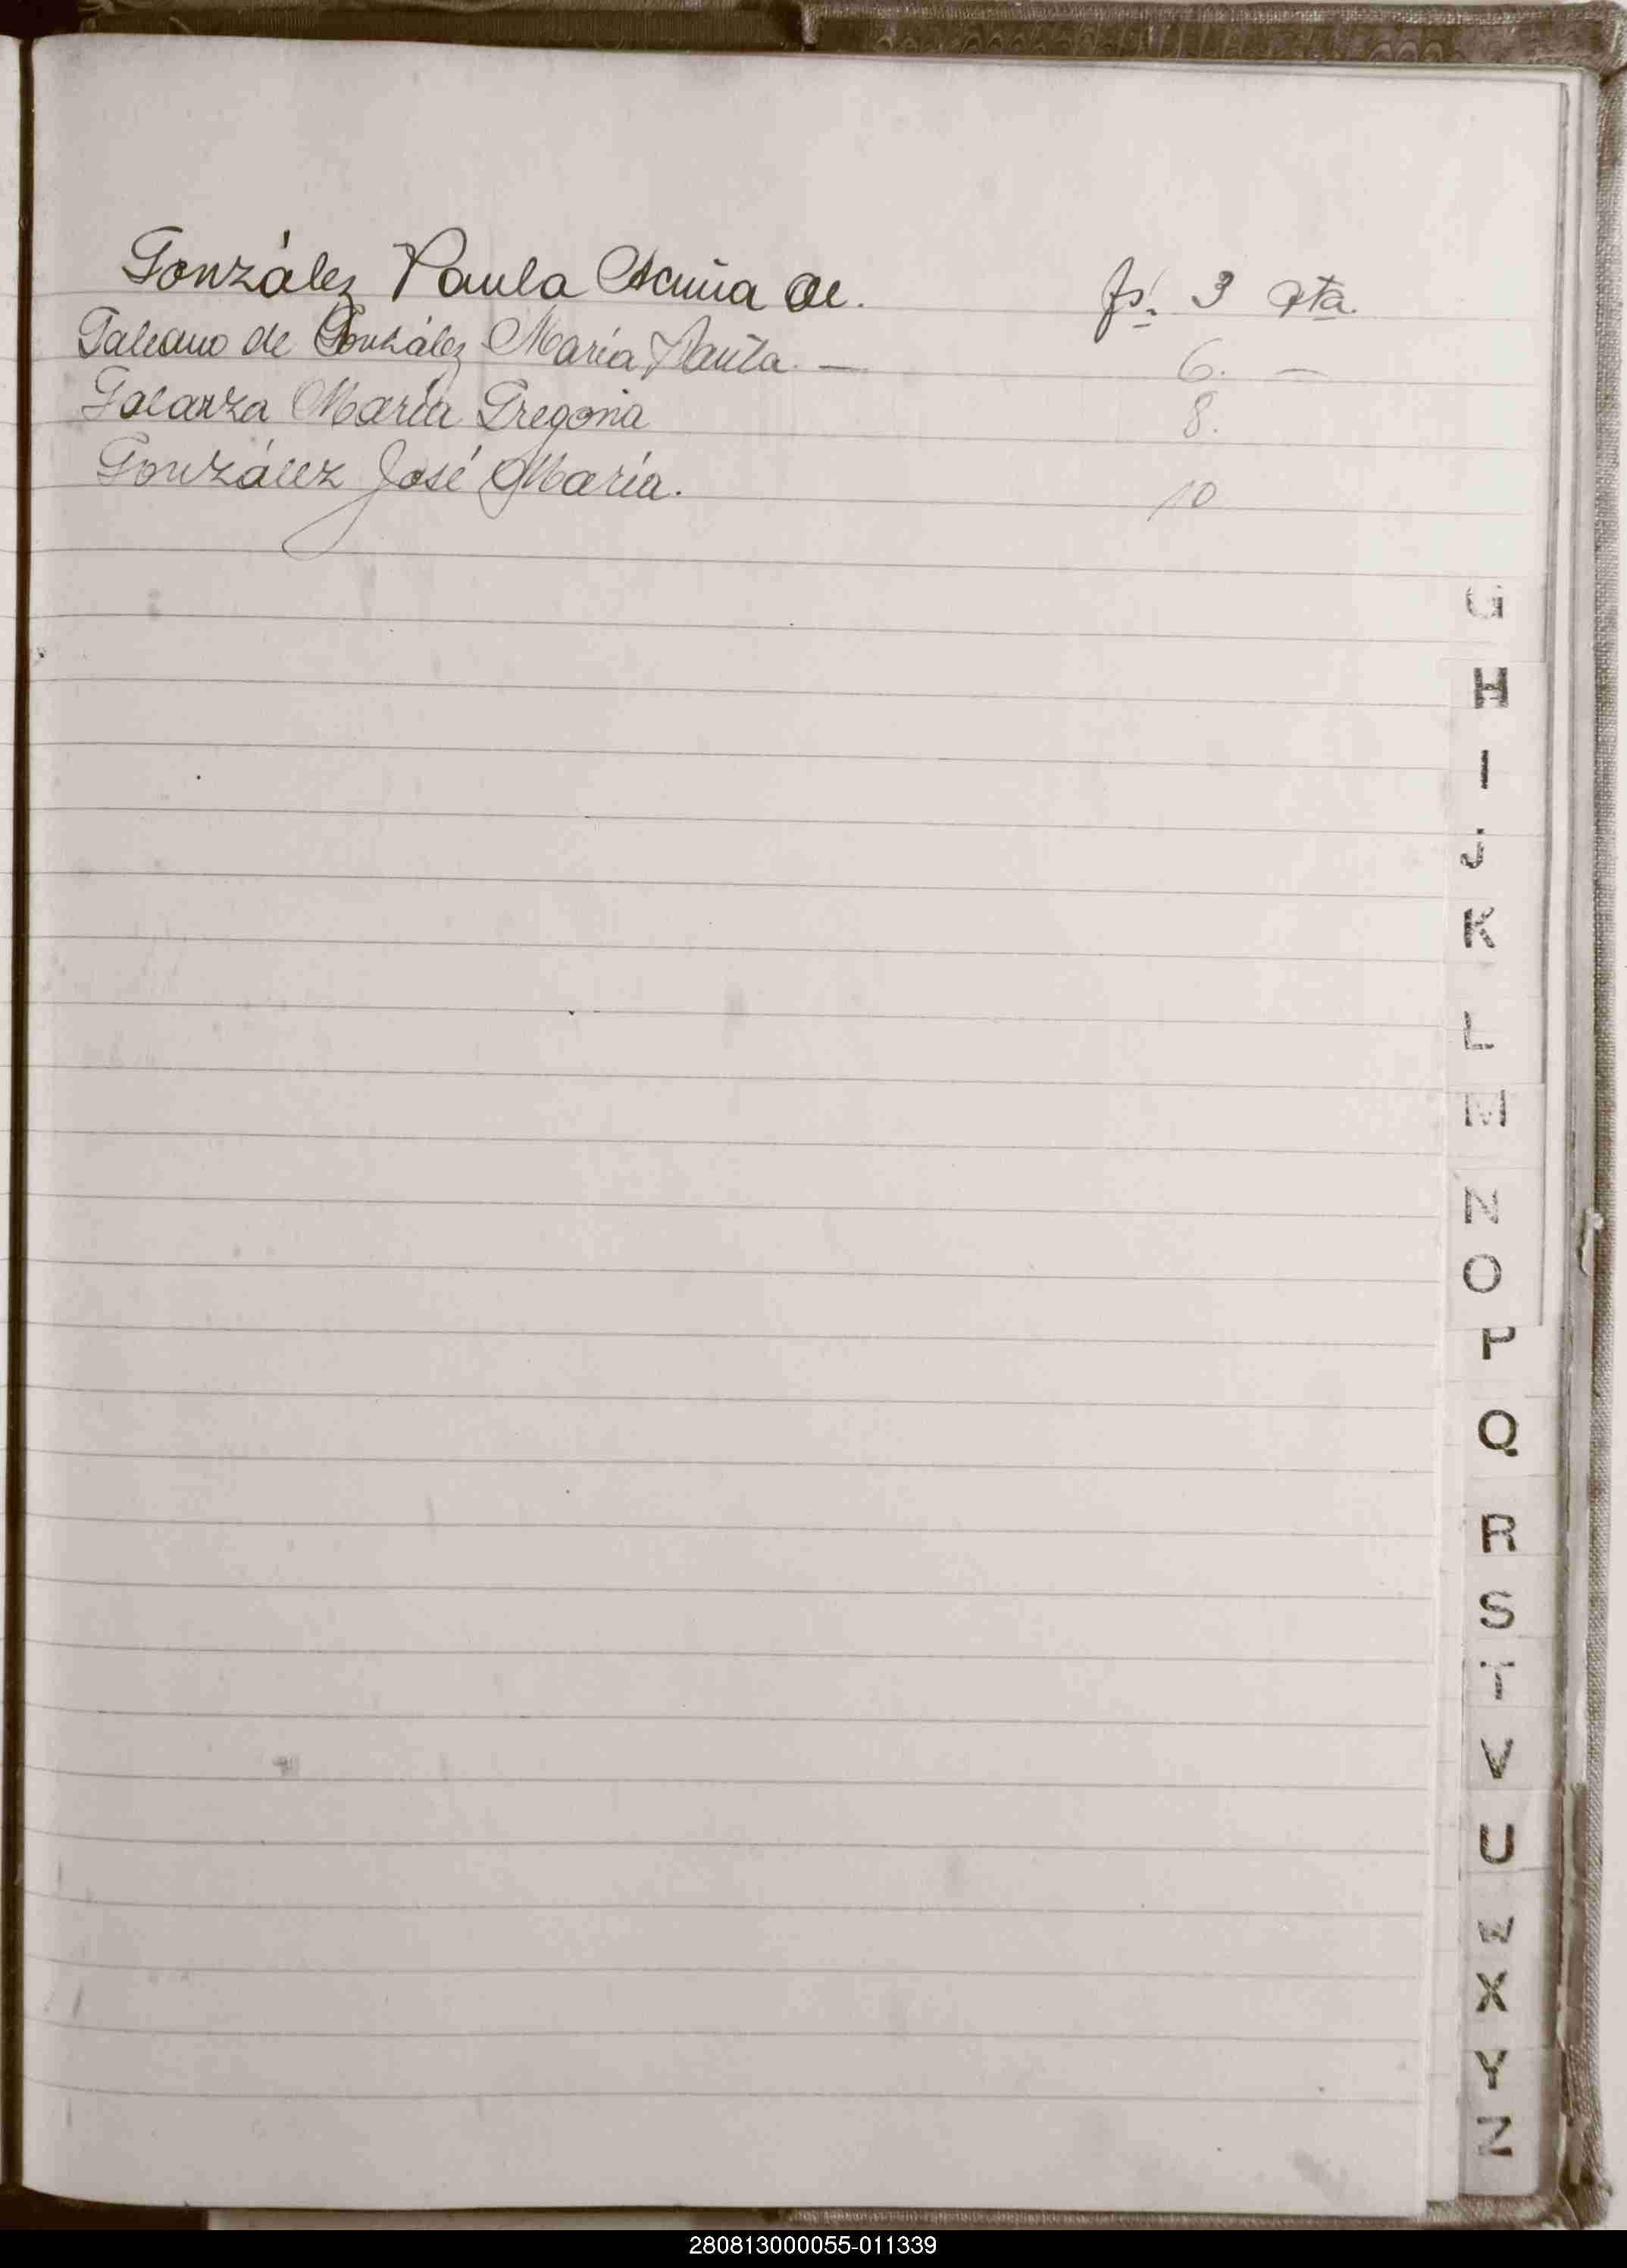 González Paula Acuña de. fs. 3 qta.
Galeano de González María Paula. — 6. —
Galarza María Gregoria 8.
González José María. 10
G
H
I
J
K
L
M
N
O
P
Q
R
S
T
V
U
W
X
Y
Z
280813000055-011339